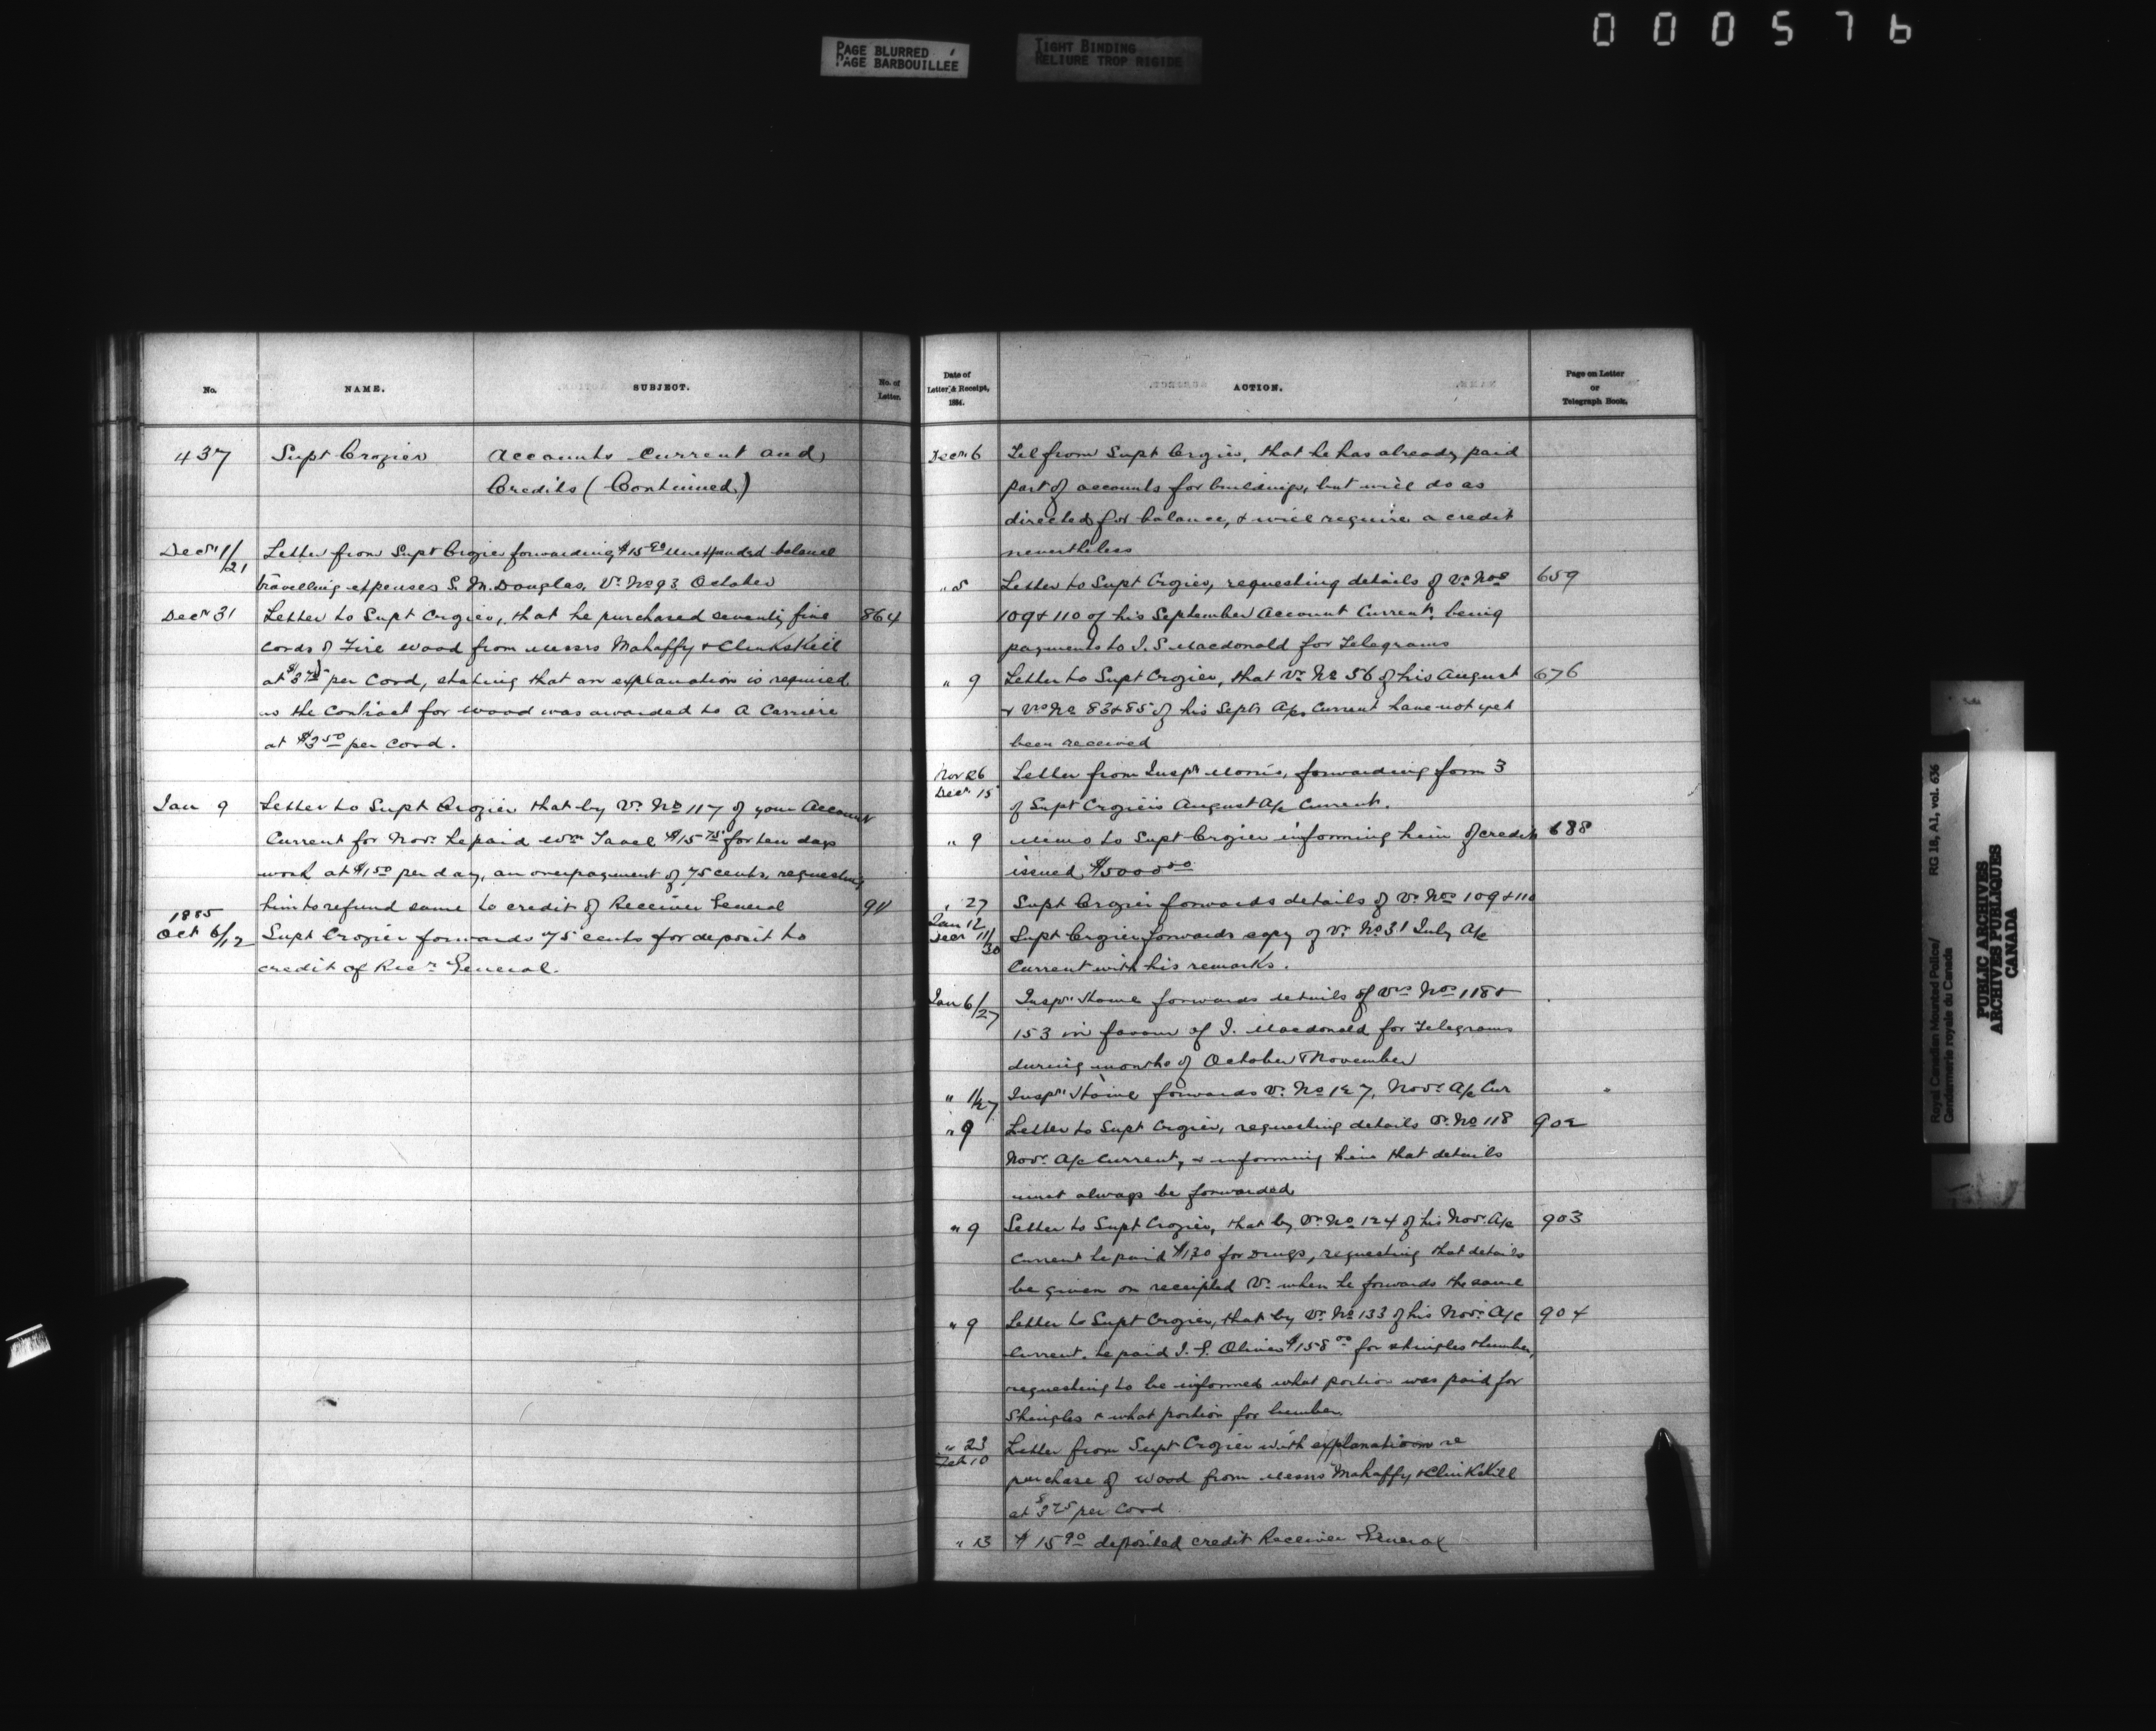 000576
PAGE BLURRED
PAGE BARBOUILLEE
TIGHT BINDING
RELIURE TROP RIGIDE
No. NAME. SUBJECT. No. of Letter.
437 Supt Crozier Accounts Current and
Credits (Continued)
Decr 1/21 Letter from Supt Crozier forwarding $15.90 unexpended balance
travelling expenses S. M. Douglas, Vr. No 93 October
Decr 31 Letter to Supt Crozier, that he purchased seventy five 864
cords of Fire wood from Messrs Mahaffy & Clinkskill
at $3.75 per Cord, stating that an explanation is required
as the Contract for wood was awarded to A Carriere
at $3.50 per Cord.
Jan 9 Letter to Supt Crozier that by Vr. No 117 of your Account
Current for Novr. he paid Wm $15.75 for ten days
work at $1.50 per day, an overpayment of 75 cents, requesting
him to refund same to credit of Receiver General 911
1885
Oct 6/12 Supt Crozier forwards 75 cents for deposit to
credit of Recr General.
Date of Letter & Receipt, 1884. ACTION. Page on Letter or Telegraph Book.
Decr 6 Tel from Supt Crozier, that he has already paid
part of accounts for buildings, but will do as
directed for balance, & will require a credit
nevertheless
" 5 Letter to Supt Crozier, requesting details of Vr. Nos 659
109 & 110 of his September Account Current, being
payments to J. S Macdonald for Telegrams
" 9 Letter to Supt Crozier, that Vr. No 56 of his August 676
& Vrs No 83 & 85 of his Septr A/c Current have not yet
been received
Nov 26
Decr 15 Letter from Inspr Morris, forwarding form 3
of Supt Crozier's August A/c Current.
" 9 Memo to Supt Crozier informing him of credit 688
issued $5000.00
" 27
Jan 12 Supt Crozier forwards details of Vr. Nos 109 & 110
Decr 11/30 Supt Crozier forwards copy of Vr. No 31 July A/c
Current with his remarks.
Jan 6/27 Inspr Howe forwards details of Vrs Nos 118 &
153 in favour of J. Macdonald for Telegrams
during months of October & November
" 1/27 Inspr Howe forwards Vr. No 127, Novr A/c Cur
" 9 Letter to Supt Crozier, requesting details Vr. No 118 902
Novr. A/c Current, & informing him that details
must always be forwarded
" 9 Letter to Supt Crozier, that by Vr. No 124 of his Novr. A/c 903
Current he paid $130 for Drugs, requesting that details
be given on receipted Vr. when he forwards the same
" 9 Letter to Supt Crozier, that by Vr. No 133 of his Novr. A/c 904
Current. he paid J. F. Oliver $158.00 for shingles & lumber,
requesting to be informed what portion was paid for
Shingles & what portion for lumber.
" 23
Feb 10 Letter from Supt Crozier with explanation re
purchase of wood from Messrs Mahaffy & Clinkskill
at $3.75 per Cord
" 13 $15.90 deposited credit Receiver General
Royal Canadian Mounted Police/ RG 18, A1, vol. 636
Gendarmerie royale du Canada
PUBLIC ARCHIVES
ARCHIVES PUBLIQUES
CANADA